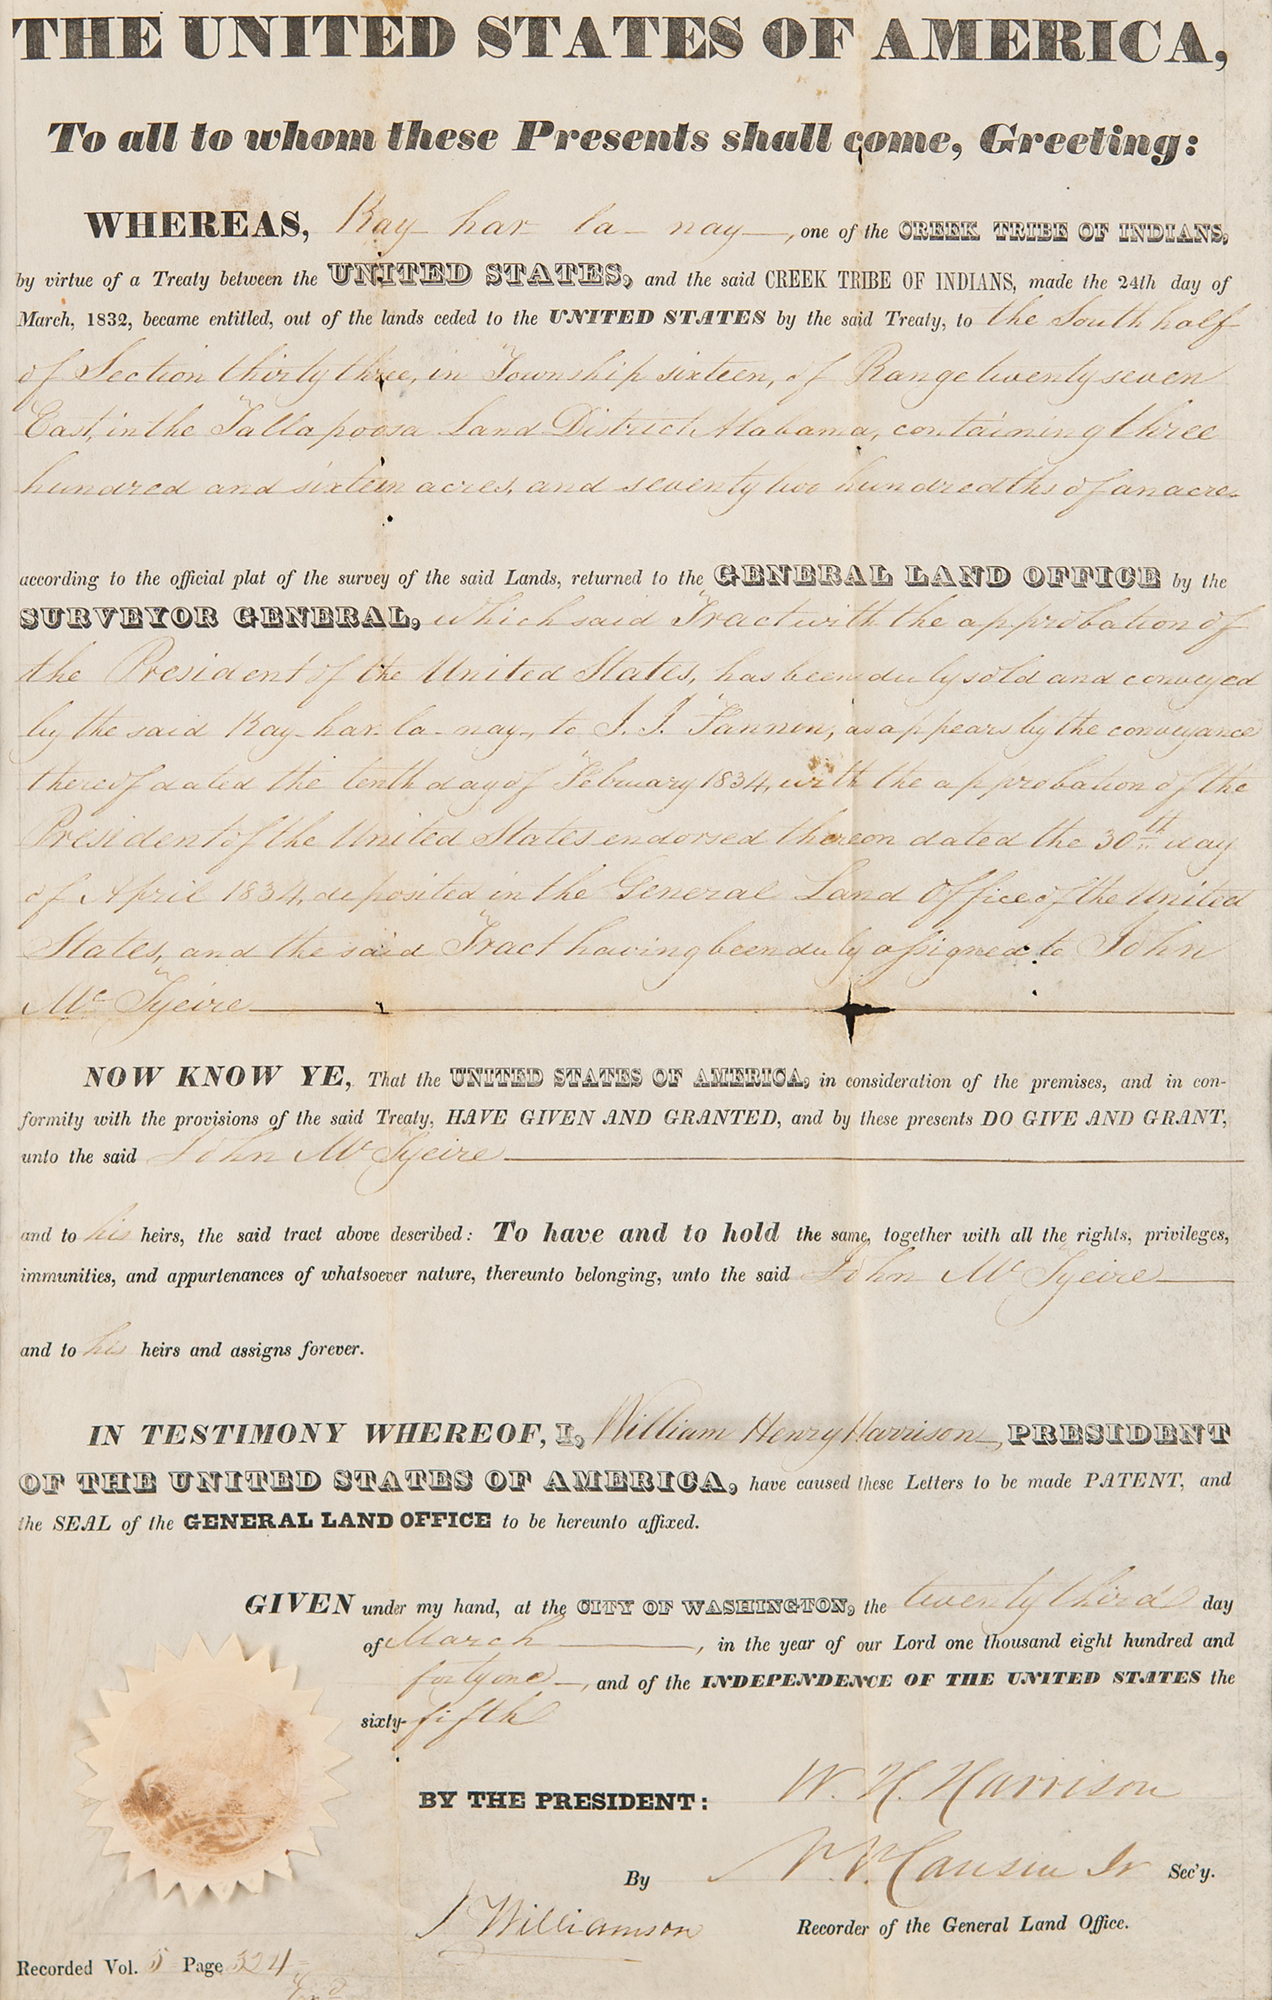 THE UNITED STATES OF AMERICA,
To all to whom these Presents shall come, Greeting:
WHEREAS, Kay har la- nay, one of the CREEK TRIBE OF INDIANS,
by virtue of a Treaty between the UNITED STATES, and the said CREEK TRIBE OF INDIANS, made the 24th day of
March, 1832, became entitled, out of the lands ceded to the UNITED STATES by the said Treaty, to the South half
of Section thirty three, in Township sixteen, of Range twenty seven
East, in the Tallapoosa Land District, Alabama, containing three
hundred and sixteen acres, and seventy two hundredths of an acre
according to the official plat of the survey of the said Lands, returned to the GENERAL LAND OFFICE by the
SURVEYOR GENERAL, which said Tract with the approbation of
the President of the United States, has been duly sold and conveyed
by the said Kay-har-la-nay, to J. J. Fannon, as appears by the conveyance
thereof dated the tenth day of February 1834, with the approbation of the
President of the United States endorsed thereon dated the 30th day
of April 1834, deposited in the General Land Office of the United
States, and the said Tract having been duly assigned to John
Mc Tyeire
NOW KNOW YE, That the UNITED STATES OF AMERICA, in consideration of the premises, and in con-
formity with the provisions of the said Treaty, HAVE GIVEN AND GRANTED, and by these presents DO GIVE AND GRANT,
unto the said John Mc Tyeire
and to his heirs, the said tract above described: To have and to hold the same, together with all the rights, privileges,
immunities, and appurtenances of whatsoever nature, thereunto belonging, unto the said John Mc Tyeire
and to his heirs and assigns forever.
IN TESTIMONY WHEREOF, I, William Henry Harrison, PRESIDENT
OF THE UNITED STATES OF AMERICA, have caused these Letters to be made PATENT, and
the SEAL of the GENERAL LAND OFFICE to be hereunto affixed.
GIVEN under my hand, at the CITY OF WASHINGTON, the twenty third day
of March, in the year of our Lord one thousand eight hundred and
forty one, and of the INDEPENDENCE OF THE UNITED STATES the
sixty-fifth
BY THE PRESIDENT: W. H. Harrison
By Jr Sec'y.
J Williamson Recorder of the General Land Office.
Recorded Vol. 5 Page 324